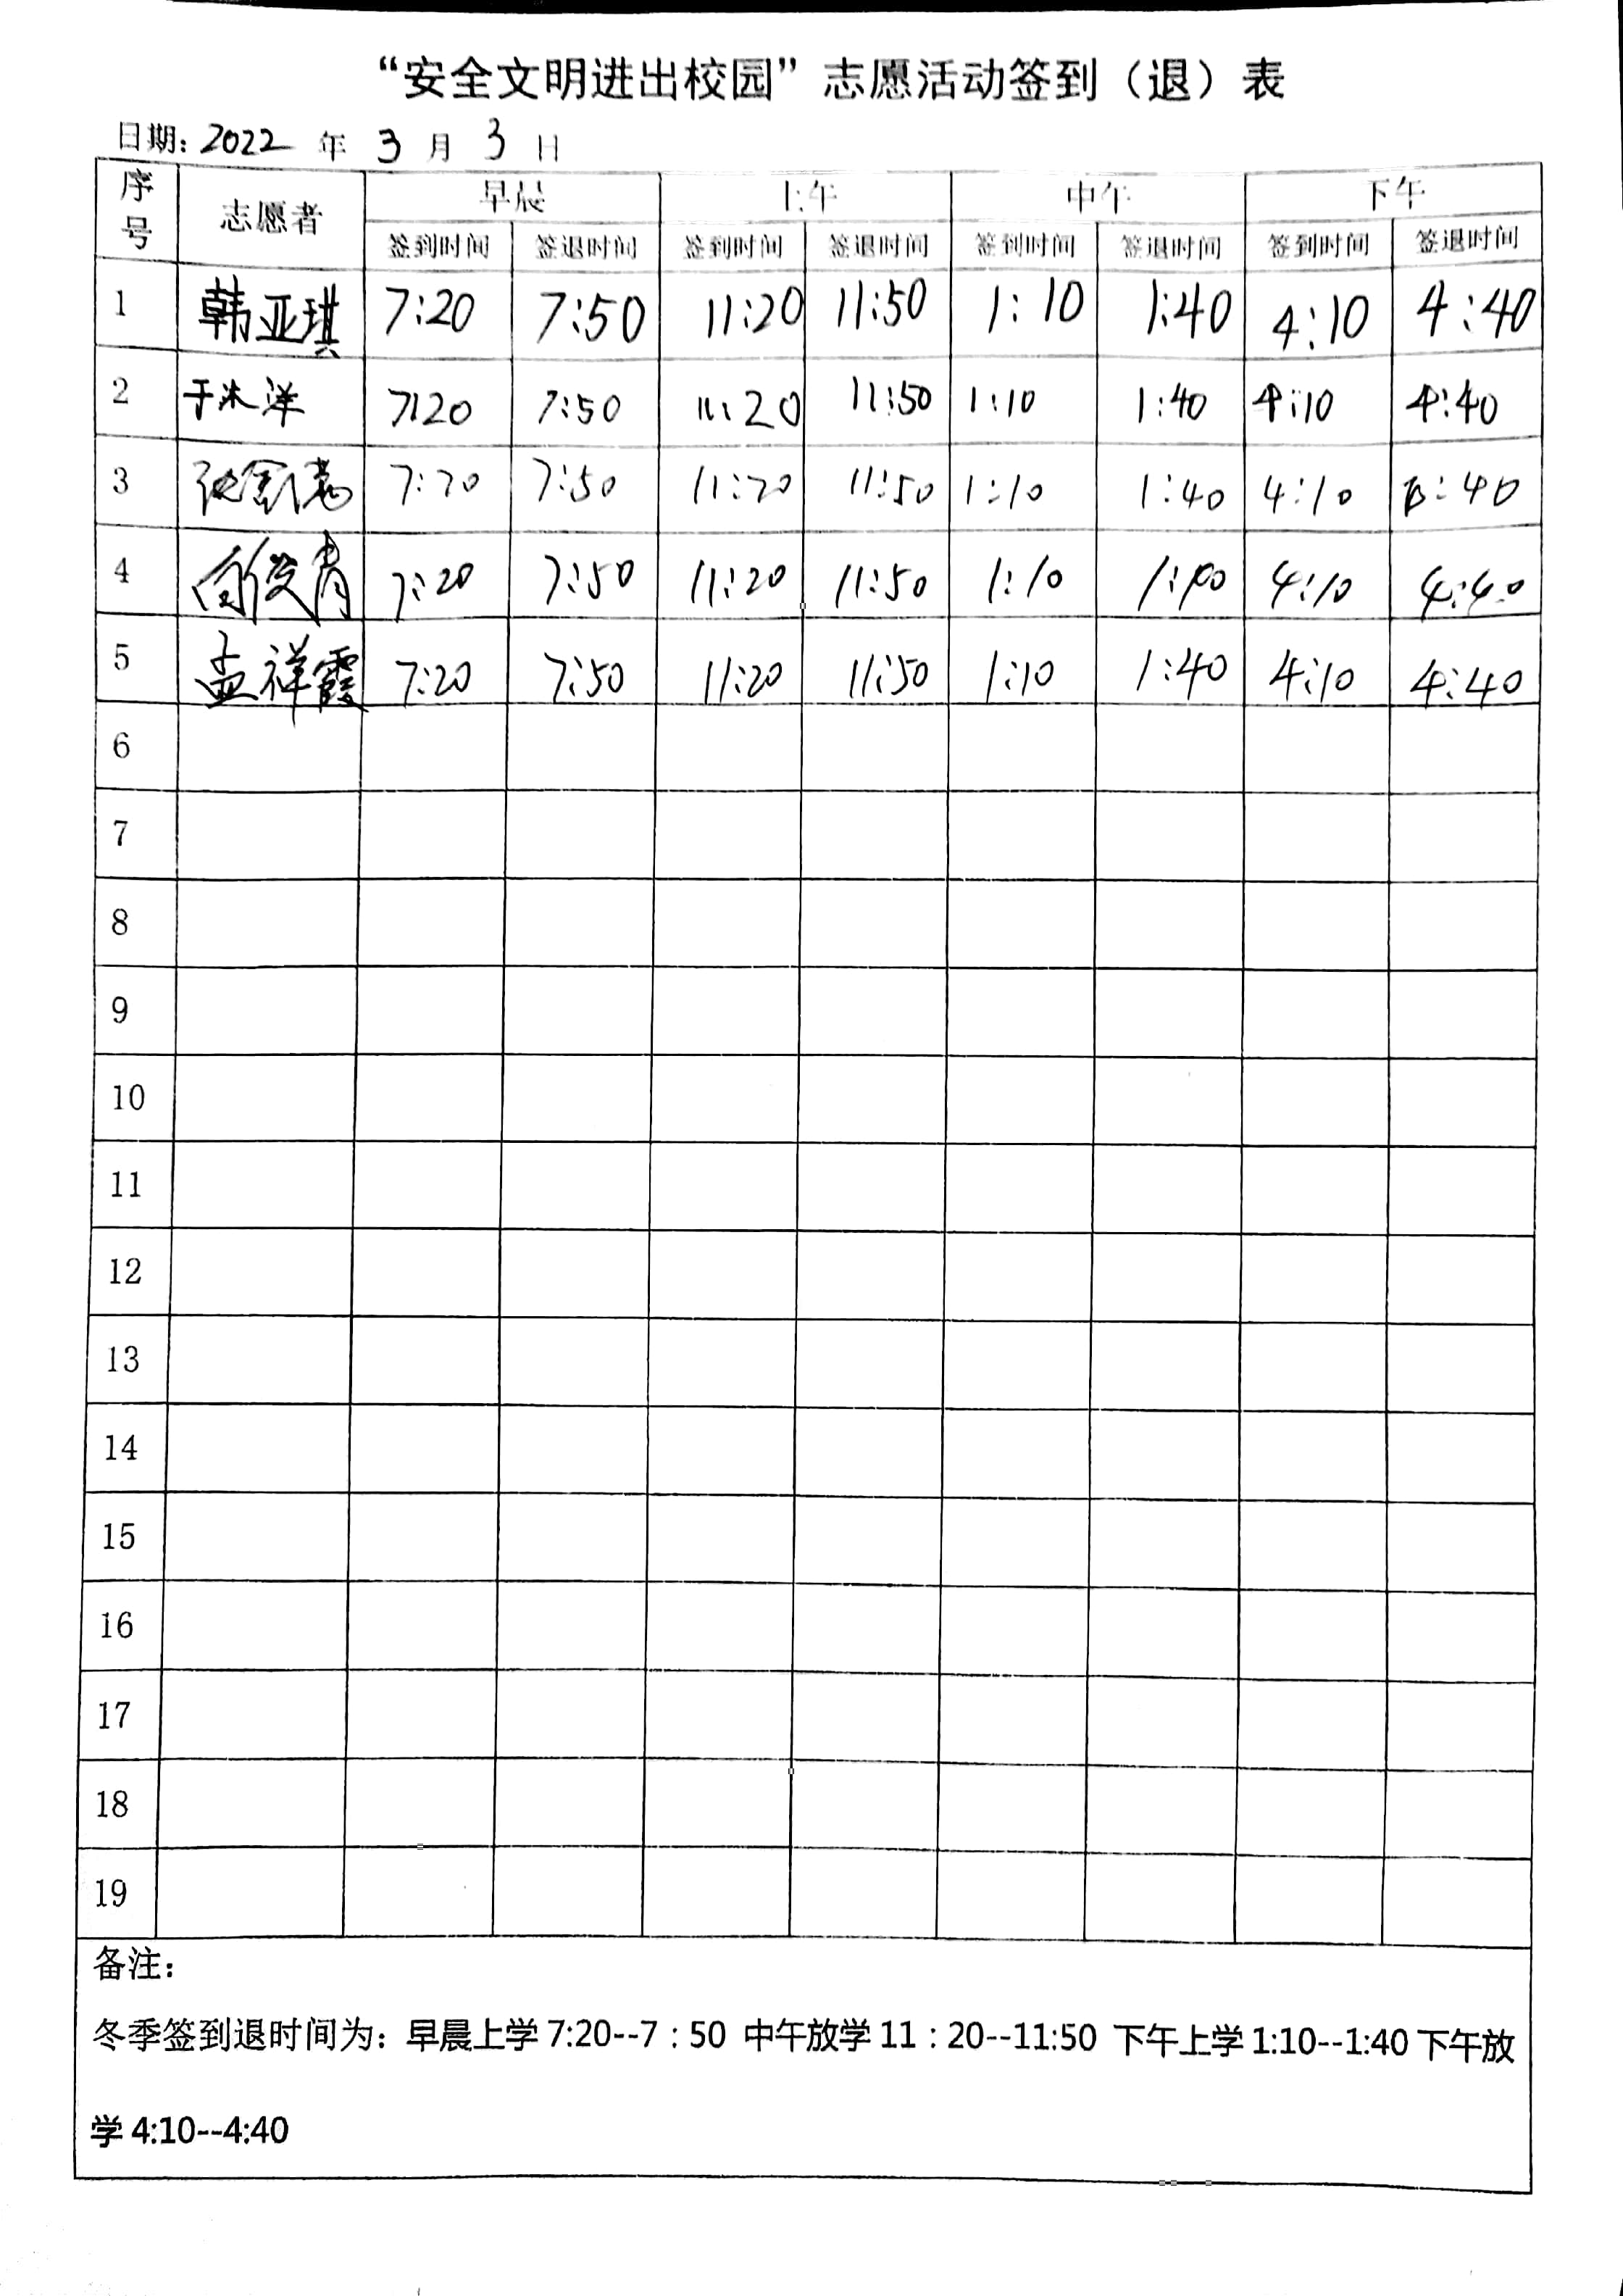 “安全文明进出校园”志愿活动签到（退）表
日期：2022 年 3 月 3 日
序号 志愿者 早晨 上午 中午 下午
签到时间 签退时间 签到时间 签退时间 签到时间 签退时间 签到时间 签退时间
1 韩亚琪 7:20 7:50 11:20 11:50 1:10 1:40 4:10 4:40
2 7:20 7:50 11:20 11:50 1:10 1:40 4:10 4:40
3 7:20 7:50 11:20 11:50 1:10 1:40 4:10 :40
4 7:20 7:50 11:20 11:50 1:10 4:10 4:40
5 孟祥霞 7:20 7:50 11:20 11:50 1:10 1:40 4:10 4:40
6
7
8
9
10
11
12
13
14
15
16
17
18
19
备注：
冬季签到退时间为：早晨上学 7:20--7：50 中午放学 11：20--11:50 下午上学 1:10--1:40 下午放
学 4:10--4:40